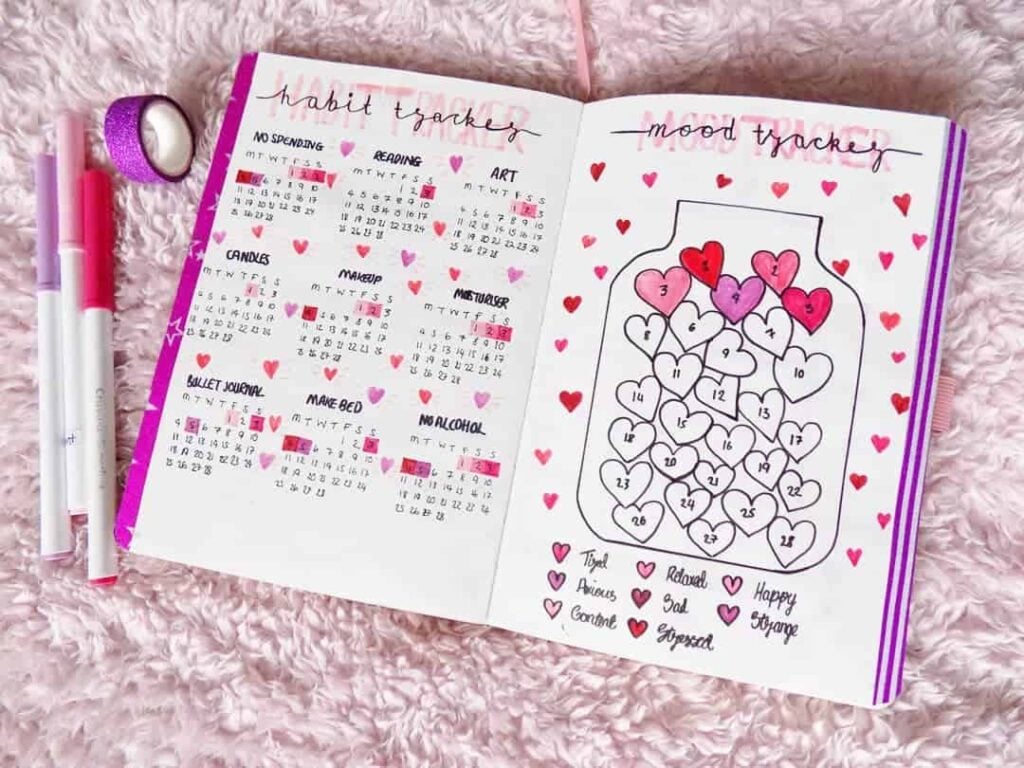 HABIT TRACKER
habit tracker
NO SPENDING
M T W T F S S
1 2 3
4 5 6 7 8 9 10
11 12 13 14 15 16 17
18 19 20 21 22 23 24
25 26 27 28
READING
M T W T F S S
1 2 3
4 5 6 7 8 9 10
11 12 13 14 15 16 17
18 19 20 21 22 23 24
25 26 27 28
ART
M T W T F S S
1 2 3
4 5 6 7 8 9 10
11 12 13 14 15 16 17
18 19 20 21 22 23 24
25 26 27 28
CANDLES
M T W T F S S
1 2 3
4 5 6 7 8 9 10
11 12 13 14 15 16 17
18 19 20 21 22 23 24
25 26 27 28
MAKEUP
M T W T F S S
1 2 3
4 5 6 7 8 9 10
11 12 13 14 15 16 17
18 19 20 21 22 23 24
25 26 27 28
MOISTURISER
M T W T F S S
1 2 3
4 5 6 7 8 9 10
11 12 13 14 15 16 17
18 19 20 21 22 23 24
25 26 27 28
BULLET JOURNAL
M T W T F S S
1 2 3
4 5 6 7 8 9 10
11 12 13 14 15 16 17
18 19 20 21 22 23 24
25 26 27 28
MAKE BED
M T W T F S S
1 2 3
4 5 6 7 8 9 10
11 12 13 14 15 16 17
18 19 20 21 22 23 24
25 26 27 28
NO ALCOHOL
M T W T F S S
1 2 3
4 5 6 7 8 9 10
11 12 13 14 15 16 17
18 19 20 21 22 23 24
25 26 27 28
MOOD TRACKER
mood tracker
1 2
3 4 5
8 6 7
9
11 10
14 12 13
15
18 16 17
20 19
23 21 22
24 25
26 27 28
Tired Relaxed Happy
Anxious Sad Strange
Content Stressed